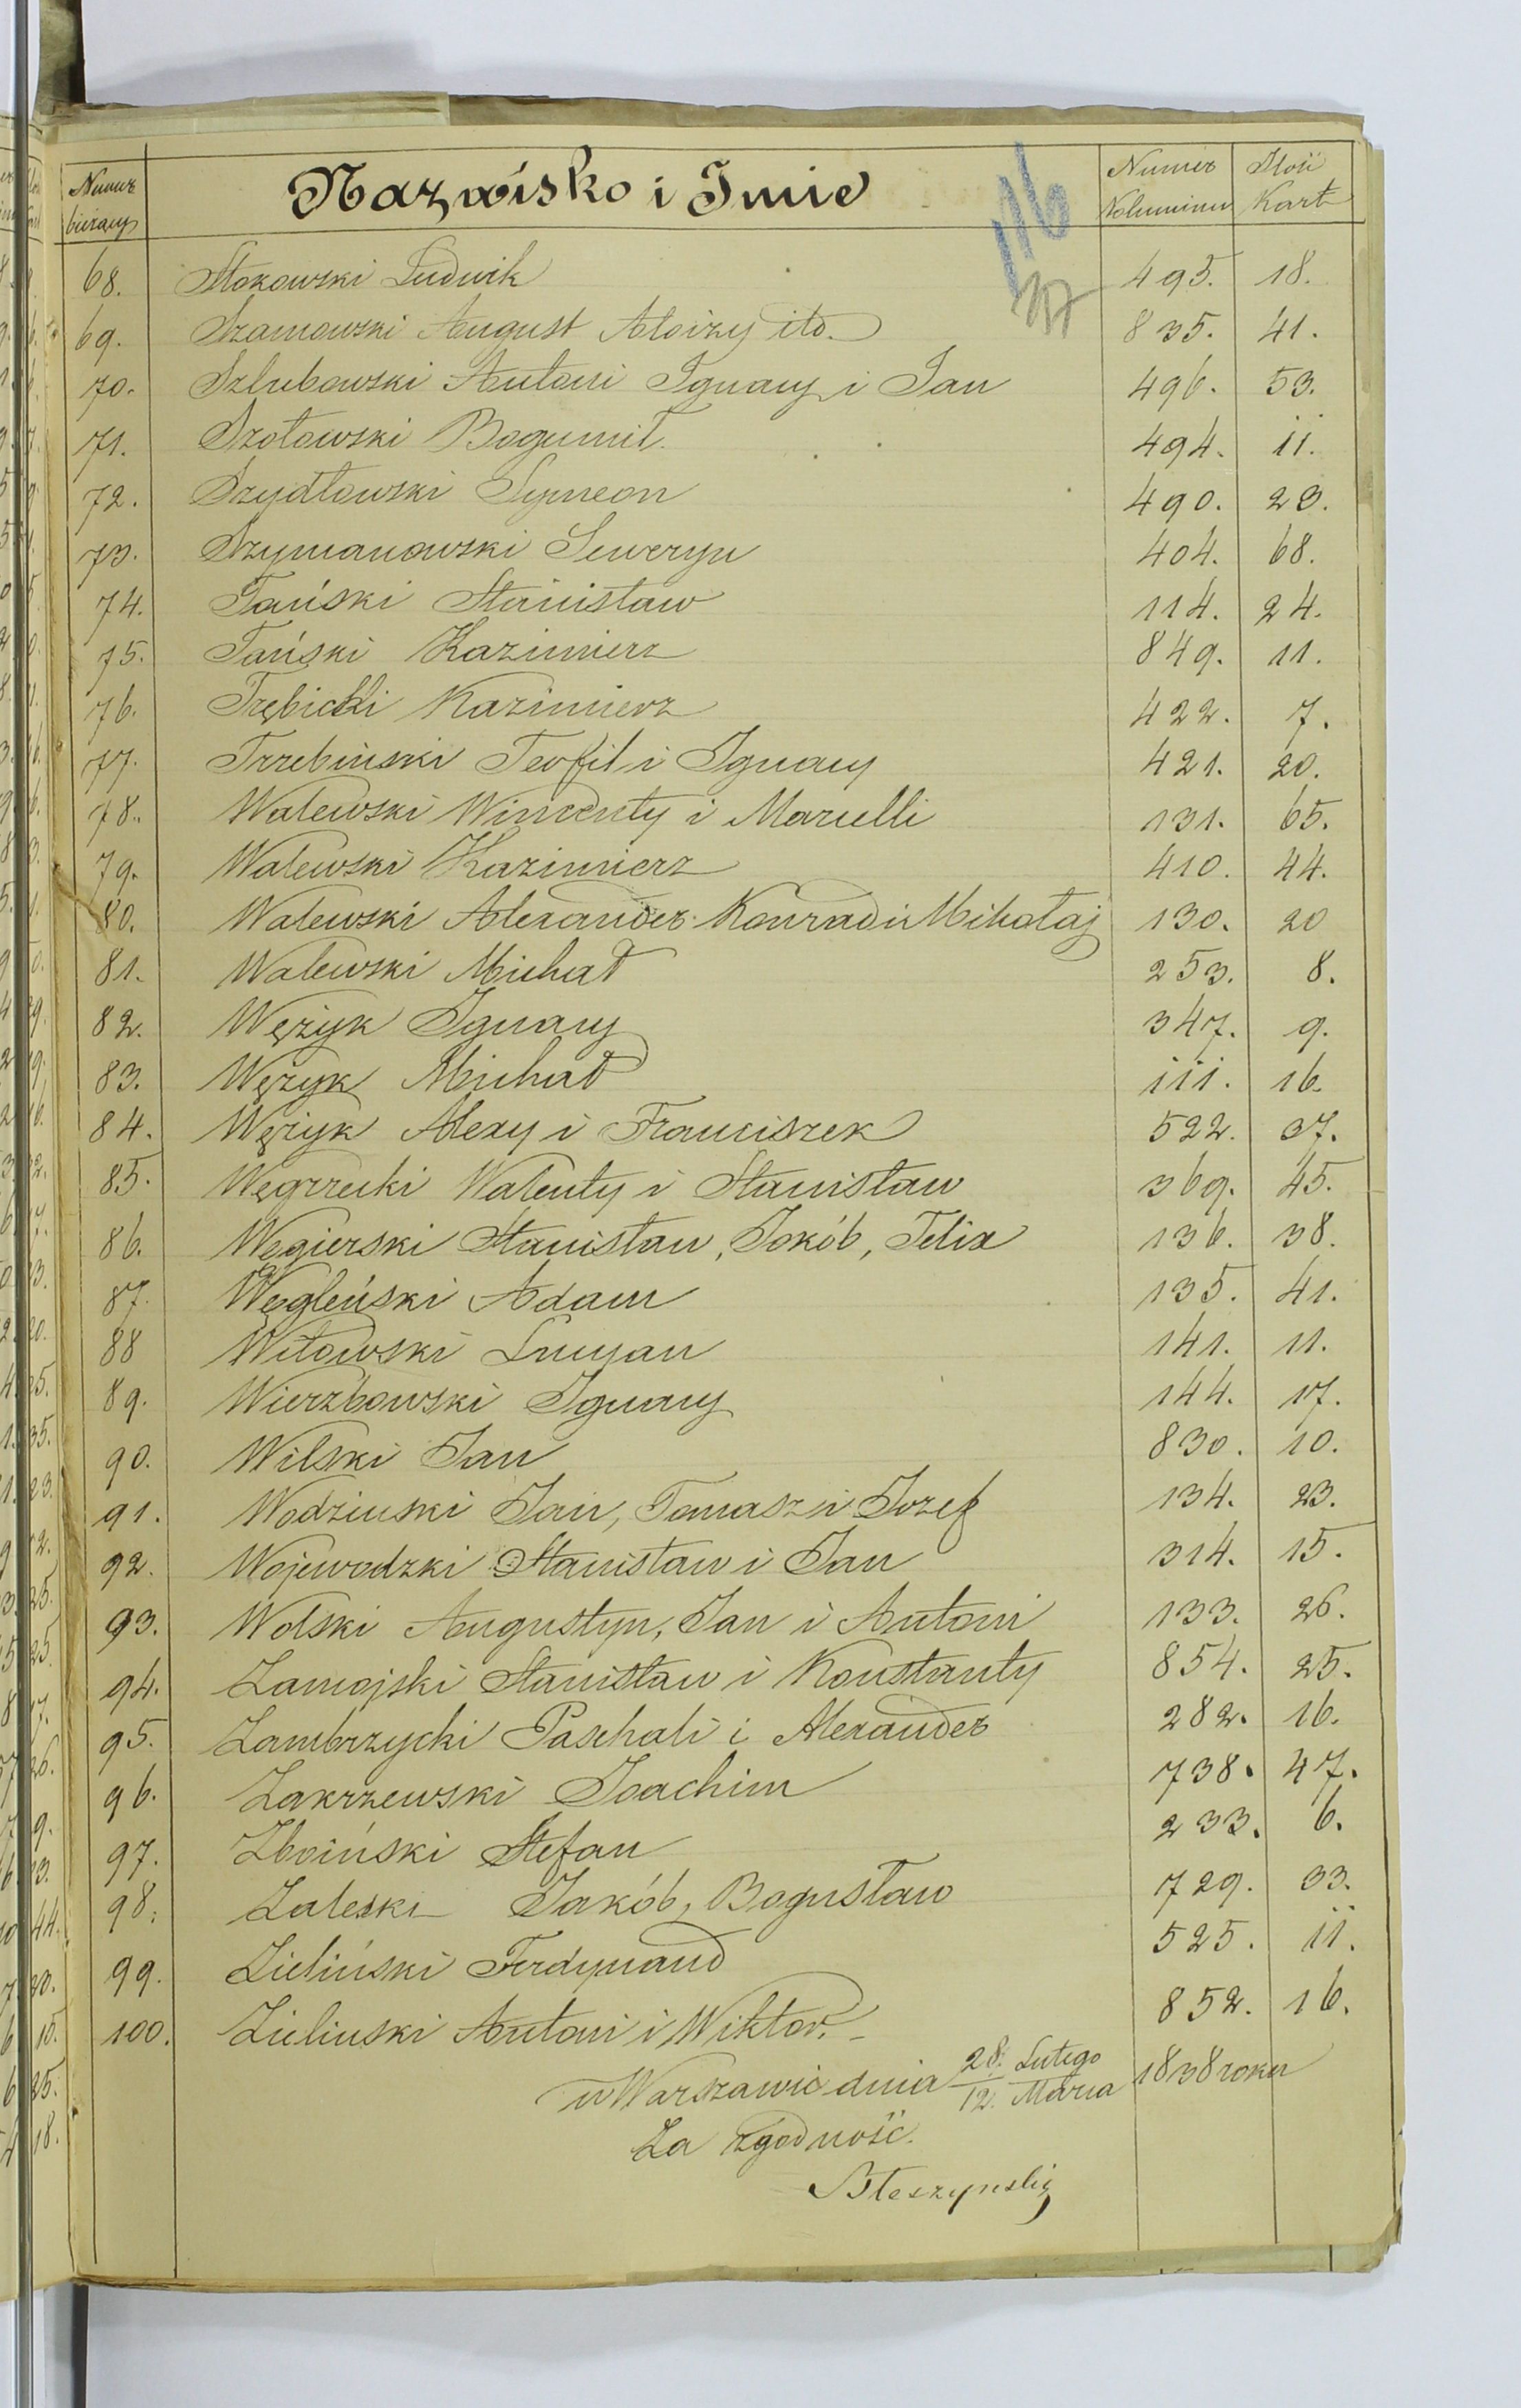 Numer bieżący Nazwisko i Imie Numer Voluminu Ilość Kart
116
68. Stokowski Ludwik 495. 18.
69. Szamowski August Aloizy itd. 835. 41.
70. Szlubowski Antoni Ignacy i Jan 496. 53.
71. Szołowski Bogumił. 494. 11.
72. Szydłowski Symeon 490. 23.
73. Szymanowski Seweryn 404. 68.
74. Tański Stanisław 114. 24.
75. Tański Kazimierz 849. 11.
76. Trębicki Kazimierz 422. 7.
77. Trzebinski Teofil i Ignacy 421. 20.
78. Walewski Wincenty i Marcelli 131. 65.
79. Walewski Kazimierz 410. 44.
80. Walewski Alexander Konrad i Mikołaj 130. 20
81. Walewski Michał 253. 8.
82. Wężyk Ignacy 347. 9.
83. Wężyk Michał 111. 16.
84. Wężyk Alexy i Franciszek 522. 37.
85. Węgrzecki Walenty i Stanisław 369. 45.
86. Węgierski Stanisław, Jokób, Felix 136. 38.
87. Węgleński Adam 135. 41.
88 Witowski Lucyan 141. 11.
89. Wierzbowski Ignacy 144. 17.
90. Wilski Jan 830. 10.
91. Wodzinski Jan, Tomasz i Jozef 134. 23.
92. Wojewodzki Stanisław i Jan 314. 15.
93. Wolski Augustyn, Jan i Antoni 133. 26.
94. Zamojski Stanisław i Konstanty 854. 25.
95. Zambrzycki Paschali i Alexander 282. 16.
96. Zakrzewski Joachim 738. 47.
97. Zboiński Stefan 233. 6.
98. Zaleski Jakób, Bogusław 729. 33.
99. Zieliński Ferdynand 525. 11.
100. Zielinski Antoni i Wiktor. 852. 16.
w Warszawie dnia 28. Lutego / 12. Marca 1838 roku
Za zgodność.
Błeszynski